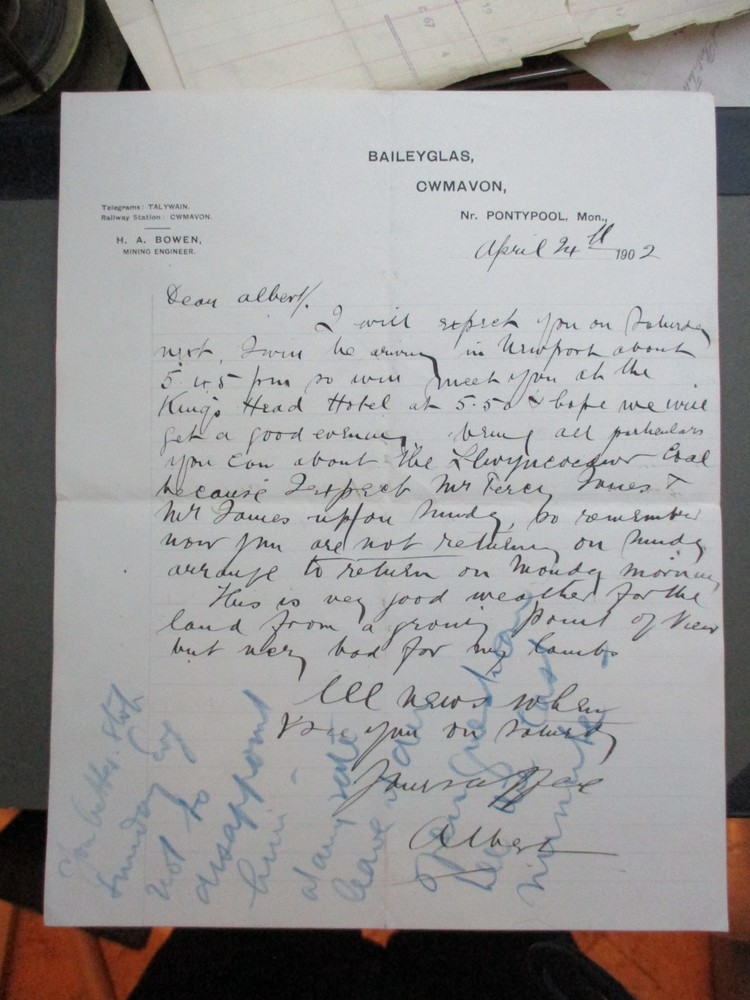 BAILEYGLAS,
CWMAVON,
Nr. PONTYPOOL, Mon.,
Telegrams: TALYWAIN.
Railway Station: CWMAVON.
H. A. BOWEN,
MINING ENGINEER.
April 24th 1902
Dear Albert,
I will expect you on Saturday
next, I will be arriving in Newport about
5.45 pm so will meet you at the
Kings Head Hotel at 5.50 & hope we will
get a good evening, bring all particulars
you can about the Llwyncoedwr Coal
because I expect Mr Percy Jones &
Mr James up on Sunday, so remember
now you are not returning on Sunday
arrange to return on Monday morning
This is very good weather for the
land from a growing point of view
but very bad for my lambs
All news when
I see you on Saturday
Yours aff
Albert
You better stop
Sunday
not to
disappoint
him
at any rate
leave